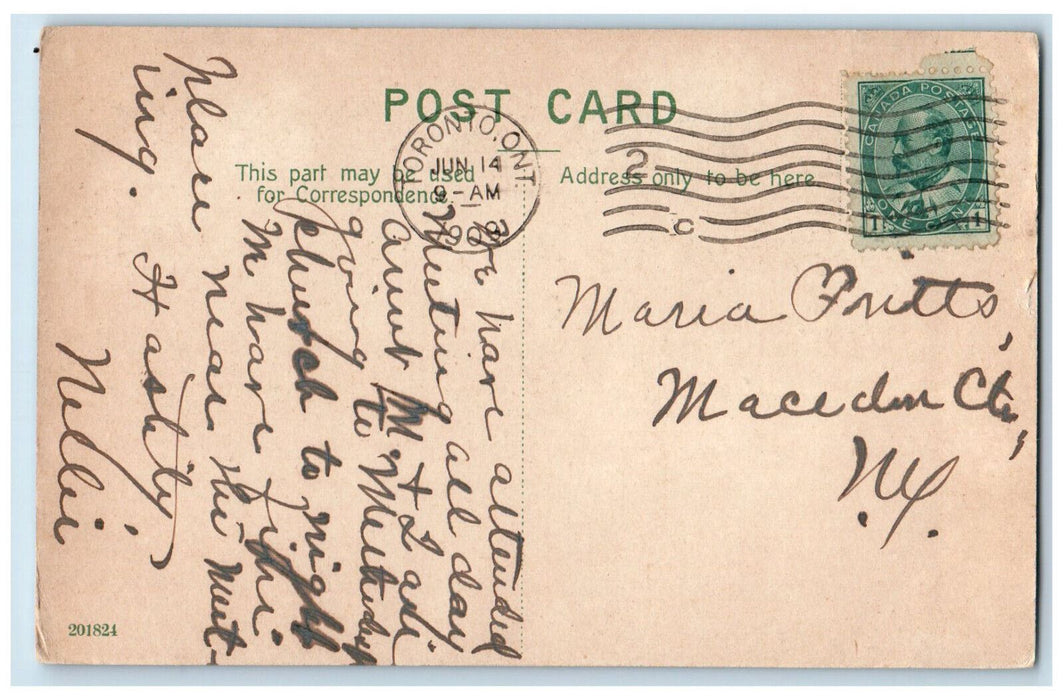 POST CARD
This part may be used
for Correspondence.
Address only to be here
TORONTO, ONT.
JUN 14
9 - AM
190
2
C
CANADA POSTAGE
ONE CENT
1 1
Maria Pritts,
Macedon Ctr,
N.Y.
We have attended
Meeting all day
aunt M. & I are
going to Methodist
church to night
M have fine
place near the meet-
ing. Hastily
Nellie
201824